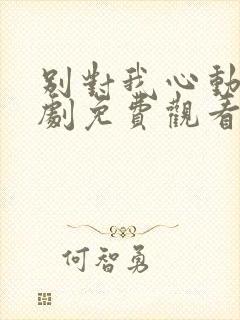 別對我心動
劇免費觀看
何智勇